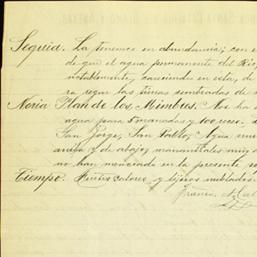 Sequia. La tenemos en abundancia; con e
de que el agua permanente del Rio,
notablemente, haciendo en esta, d
ra regar las tierras sembradas de
Noria Plan de los Mimbres. No ha
agua para 5 manadas y 100 reces.
San Jorge, San Pablo, Agua nue
arriba y de abajo, manantiales muy
no han menciada en la presente se
Tiempo. Fuertes calores, y lijeros nublados